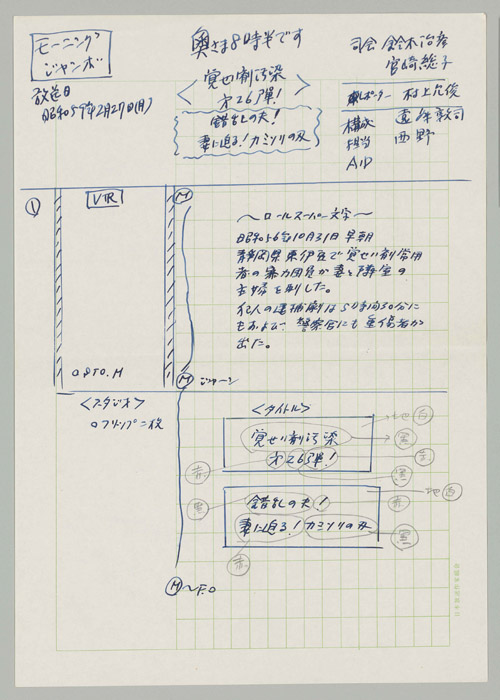 モーニング
ジャンボ
奥さま8時半です
放送日
昭和57年2月27日(月)
覚せい剤汚染
第26弾!
錯乱の夫!
妻に迫る!カミソリの刃
司会 鈴木治彦
宮崎総子
リポーター 村上允俊
構成
担当 西野
AD
①
VTR
M
〜ロールスーパー文字〜
昭和56年10月31日早朝
静岡県東伊豆で覚せい剤常用
者の暴力団員が妻と隣室の
主婦を刺した。
犯人の逮捕劇は5時間30分に
もおよび、警察官にも重傷者が
出た。
M
<スタジオ>
○フリップ二枚
<タイトル>
覚せい剤汚染
第26弾!
地 白
黒
赤
錯乱の夫!
妻に迫る!カミソリの刃
地 白
赤
黒
黒
赤
M〜F.O
日本放送作家協会